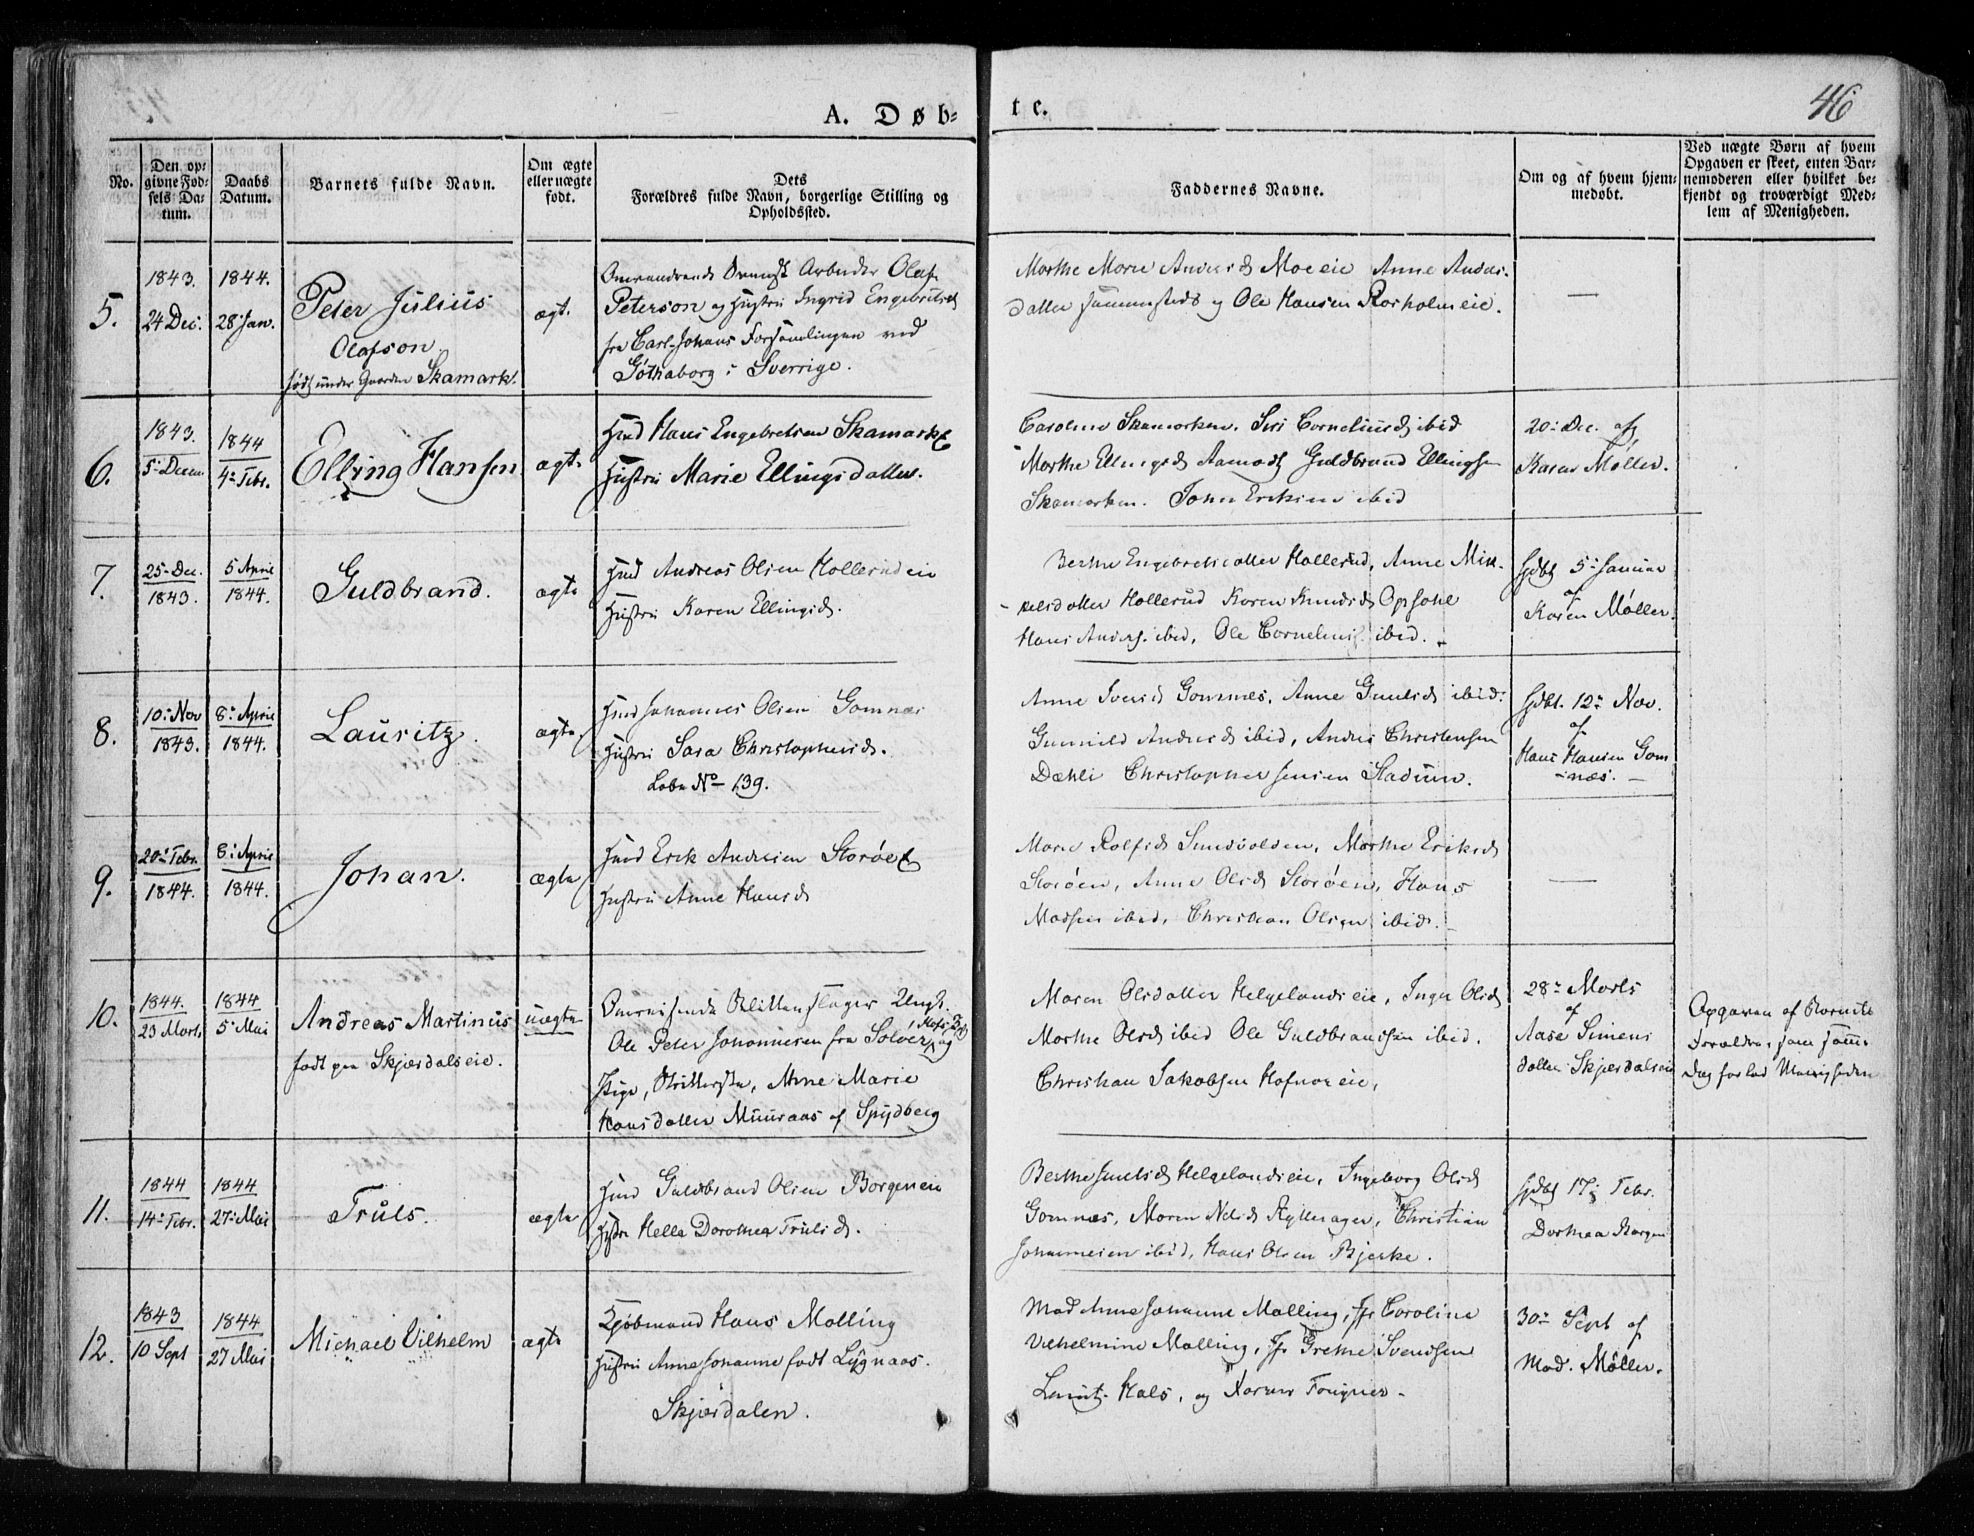 A. Døb-
te.
46
No.
Den op-
givne Fød-
sels Da-
tum.
Daabs
Datum.
Barnets fulde Navn.
Om ægte
eller uægte
født.
Dets
Forældres fulde Navn, borgerlige Stilling og
Opholdssted.
Faddernes Navne.
Om og af hvem hjem-
medøbt.
Ved uægte Børn af hvem
Opgaven er skeet, enten Bar-
nemoderen eller hvilket be-
kjendt og troværdigt Med-
lem af Menigheden.
5.
1843.
24 Dec.
1844.
28 Jan.
Peter Julius
Olafson
født under Gaarden Skamark.
ægt.
Omvandrende Svensk Arbeider Olaf
Peterson og Hustru Ingrid Engebretsd
fra Carl-Johans Forsamlingen ved
Gøthaborg i Sverrige.
Marthe Marie Andersd Moe eie Anne Anders-
datter sammesteds og Ole Hansen Rosholm eie.
—
6.
1843.
5 Decem
1844
4 Febr.
Elling Hansen
ægt.
Huusmd Hans Engebretsen Skamark
Hustru Marie Ellingsdatter.
Caroline Skamarken. Siri Corneliusd ibid
Marthe Ellingsd Aamodt Guldbrand Ellingsen
Skamarken. John Eriksen ibid
20 Dec. af
Karen Møller.
7.
25 Dec.
1843.
5 April
1844.
Guldbrand.
ægte
Huusmd Andreas Olsen Hollerud eie
Hustru Karen Ellingsd.
Berthe Engebretsdatter Hollerud, Anne Mik-
kelsdatter Hollerud Karen Knudsd Opsahl
Hans Anders. ibid, Ole Cornelius. ibid.
Hdbt 5 Januar
af
Karen Møller.
8.
10 Nov
1843.
8 April
1844.
Lauritz.
ægte
Huusmd Johannes Olsen Gomnæs
Hustru Sara Christophersd.
Løbe No 139.
Anne Iversd Gomnæs, Anne Gulsd ibid.
Gunnild Andersd ibid, Anders Christensen
Dæhli Christopher Jensen Stadum.
Hdbt. 12 Nov.
af
Hans Hansen Gom
-næs.
9.
20 Febr.
1844.
8 April
1844.
Johan.
ægte
Huusmd Erik Andersen Storøe
Hustru Anne Hansd
Marie Rolfsd Sundvolden, Marthe Eriksd
Storøen, Anne Olsd Storøen, Hans
Madsen ibid, Christian Olsen ibid.
—
10.
1844.
23 Marts
1844
5 Mai
Andreas Martinus
født paa Skjærdalseie.
uægte
Omreisende Blikkenslager Ungk.
Ole Peter Johannesen fra Soløer og
Pige, Anne Marie
Hansdatter Muuraas af Spydberg
Maren Olsdatter Helgelandseie, Inger Olsd
Marthe Olsd ibid Ole Guldbrandsen ibid.
Christian Jakobsen Hafnor eie,
28 Marts
af
Aase Simens
datter Skjærdalseie
Opgaven af Barnets
Forældre, som samme
Dag forlod Menigheden
11.
1844
14 Febr.
1844
27 Mai
Truls.
ægte
Huusmd Guldbrand Olsen Borgen eie
Hustru Helle Dorothea Trulsd.
Berthe Helgelandseie, Ingeborg Olsd
Gomnæs, Maren Nilsd Rytterager, Christian
Johannesen ibid, Hans Olsen Bjerke.
Hdbt 17 Febr.
Dorthea Borgen
12.
1843
10 Sept
1844
27 Mai
Michael Vilhelm
ægte
Kjøbmand Hans Malling
Hustru Anne Johanne født Lygnaas.
Skjærdalen.
Mad Anne Johanne Malling, Jfr Caroline
Vilhelmine Malling, Jfr Grethe Svendsen
Lieut. Hals, og Fougner.
30 Sept af
Mad. Møller.